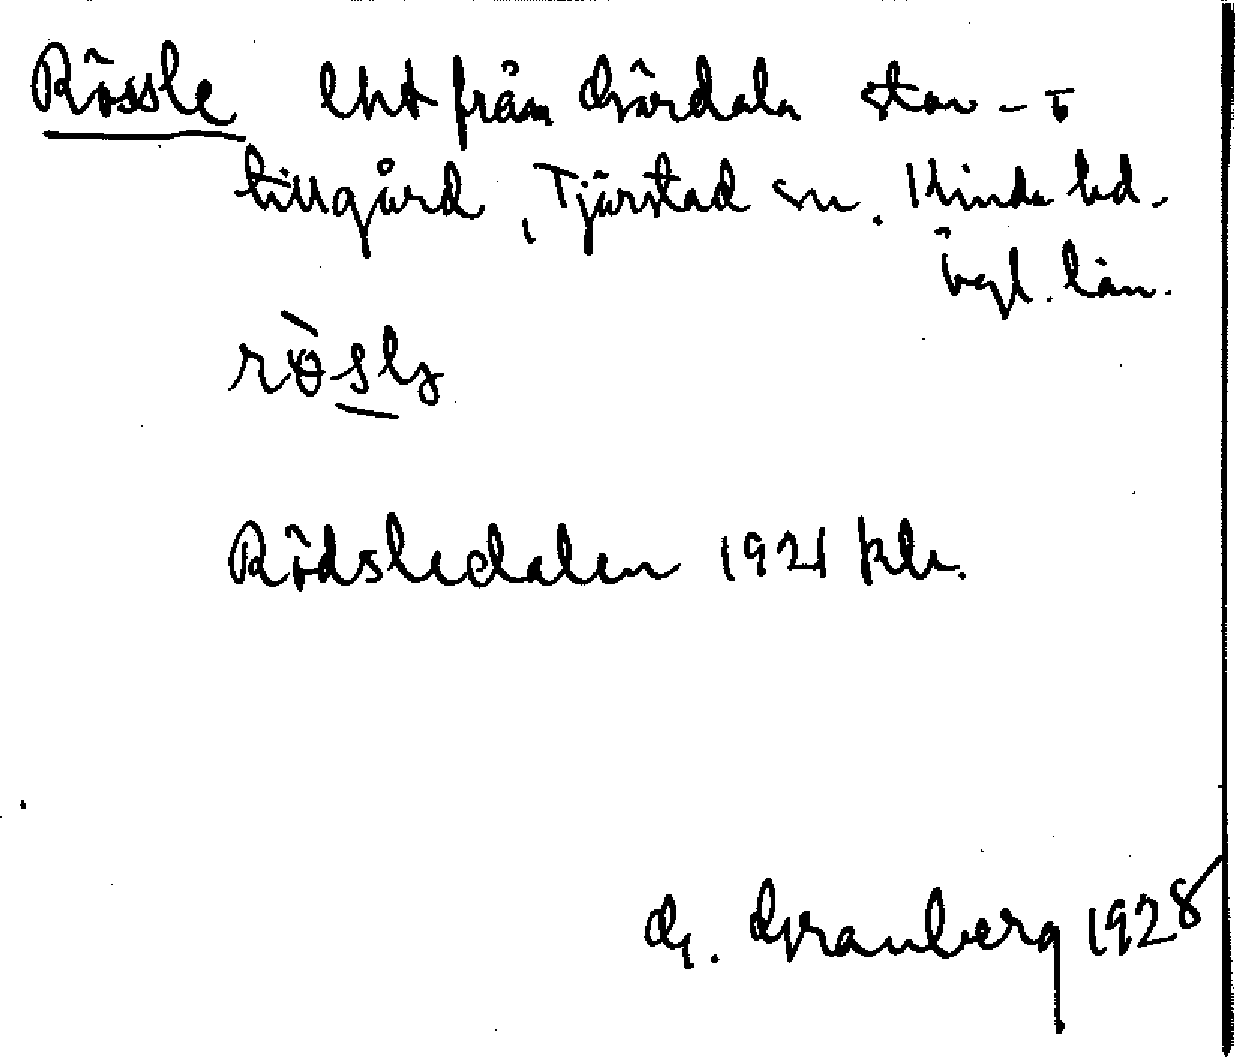 Rössle lht från Gärdala stor- o
lillgård, Tjärstad sn. Kinda hd.
Ögl. län.
rösly
Rödsledalen 1921 kk.
G. Granberg 1928